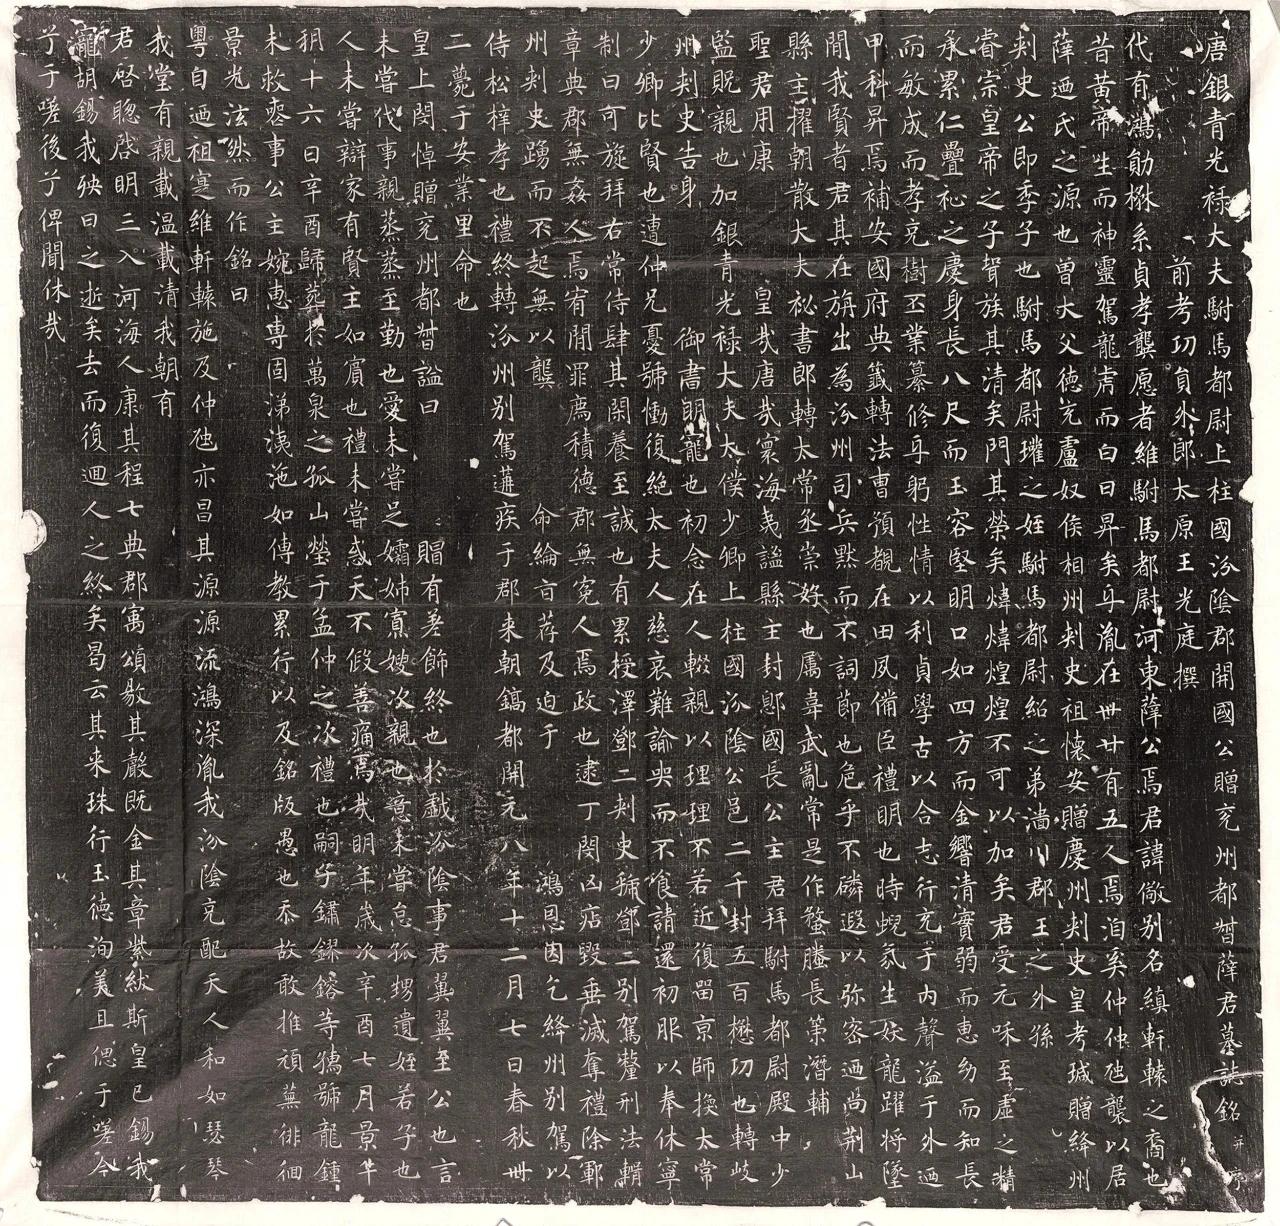 唐銀青光祿大夫駙馬都尉上柱國汾陰郡開國公贈兗州都督薛君墓誌銘并序
前考功員外郎太原王光庭撰
代有鴻勛楙系貞孝龔愿者維駙馬都尉河東薛公焉君諱儆別名縝軒轅之裔也
昔黃帝生而神靈駕龍虎而白日昇矣乎胤在卅廿有五人焉洎奚仲仲虺襲以居
薛迺氏之源也曾大父德元盧奴侯相州刺史祖懷安贈慶州刺史皇考瑊贈絳州
刺史公即季子也駙馬都尉瓘之姪駙馬都尉紹之弟淄川郡王之外孫
睿宗皇帝之子聟族其清矣門其榮矣煒煒煌煌不可以加矣君受元味至虛之精
承累仁疊祉之慶身長八尺而玉容堅明口如四方而金響清實弱而惠幼而知長
而敏成而孝克樹丕業纂修乎躬性情以利貞學古以合志行充于內聲溢于外迺
甲科昇焉補安國府典籤轉法曹預覩在田夙備臣禮明也時蜺氛生妖龍躍將墜
閒我賢者君其在旃出為汾州司兵黙而不詞節也危乎不磷遐以弥密迺尚荆山
縣主擢朝散大夫祕書郎轉太常丞崇好也属韋武亂常是作蝥螣長策潛輔
聖君用康 皇哉唐哉寰海夷謐縣主封郎國長公主君拜駙馬都尉殿中少
監貺親也加銀青光祿大夫太僕少卿上柱國汾陰公邑二千封五百楙功也轉岐
州刺史告身 御書明寵也初念在人輟親以理理不若近復留京師換太常
少卿比賢也遭仲兄憂號慟復絶太夫人慈哀難諭央而不食請還初服以奉休寧
制曰可旋拜右常侍肆其閑養至誠也有累授澤鄧二刺史虢鄧二別駕釐刑法輯
章典郡無姦人焉宥閒罪廌積德郡無冤人焉政也逮丁閔凶痁毀垂滅奪禮除鄆
州刺史踴而不起無以龔 命綸亯荐及迫于 鴻恩因乞絳州別駕以
侍松梓孝也禮終轉汾州別駕遘疾于郡来朝鎬都開元八年十二月七日春秋卌
二薨于安業里命也
皇上閔悼贈兗州都督謚曰 賵有差飾終也於戲汾陰事君翼翼至公也言
未嘗代事親蒸蒸至勤也愛未嘗足孀姊寡嫂次親也意未嘗怠孤甥遺姪若子也
人未嘗辯家有賢主如賓也禮未嘗惑天不假善痛焉哉明年歲次辛酉七月景午
朔十六日辛酉歸葬於萬泉之孤山塋于孟仲之次禮也嗣子鏽鏐鎔等鵷號龍鍾
未敕喪事公主婉惠專固涕洟沲如傅教累行以及銘版愚也忝故敢推頑蕪徘徊
景光泫然而作銘曰
粵自迺祖寔維軒轅施及仲虺亦昌其源源流鴻深胤我汾陰克配天人和如瑟琴
我堂有親載温載清我朝有
君啓聰啓明三入河海人康其程七典郡寓頌敭其馨既金其章紫紱斯皇已錫我
寵胡錫我殃日之逝矣去而復迴人之終矣曷云其来珠行玉德洵美且偲于嗟今
兮于嗟後兮俾聞休哉